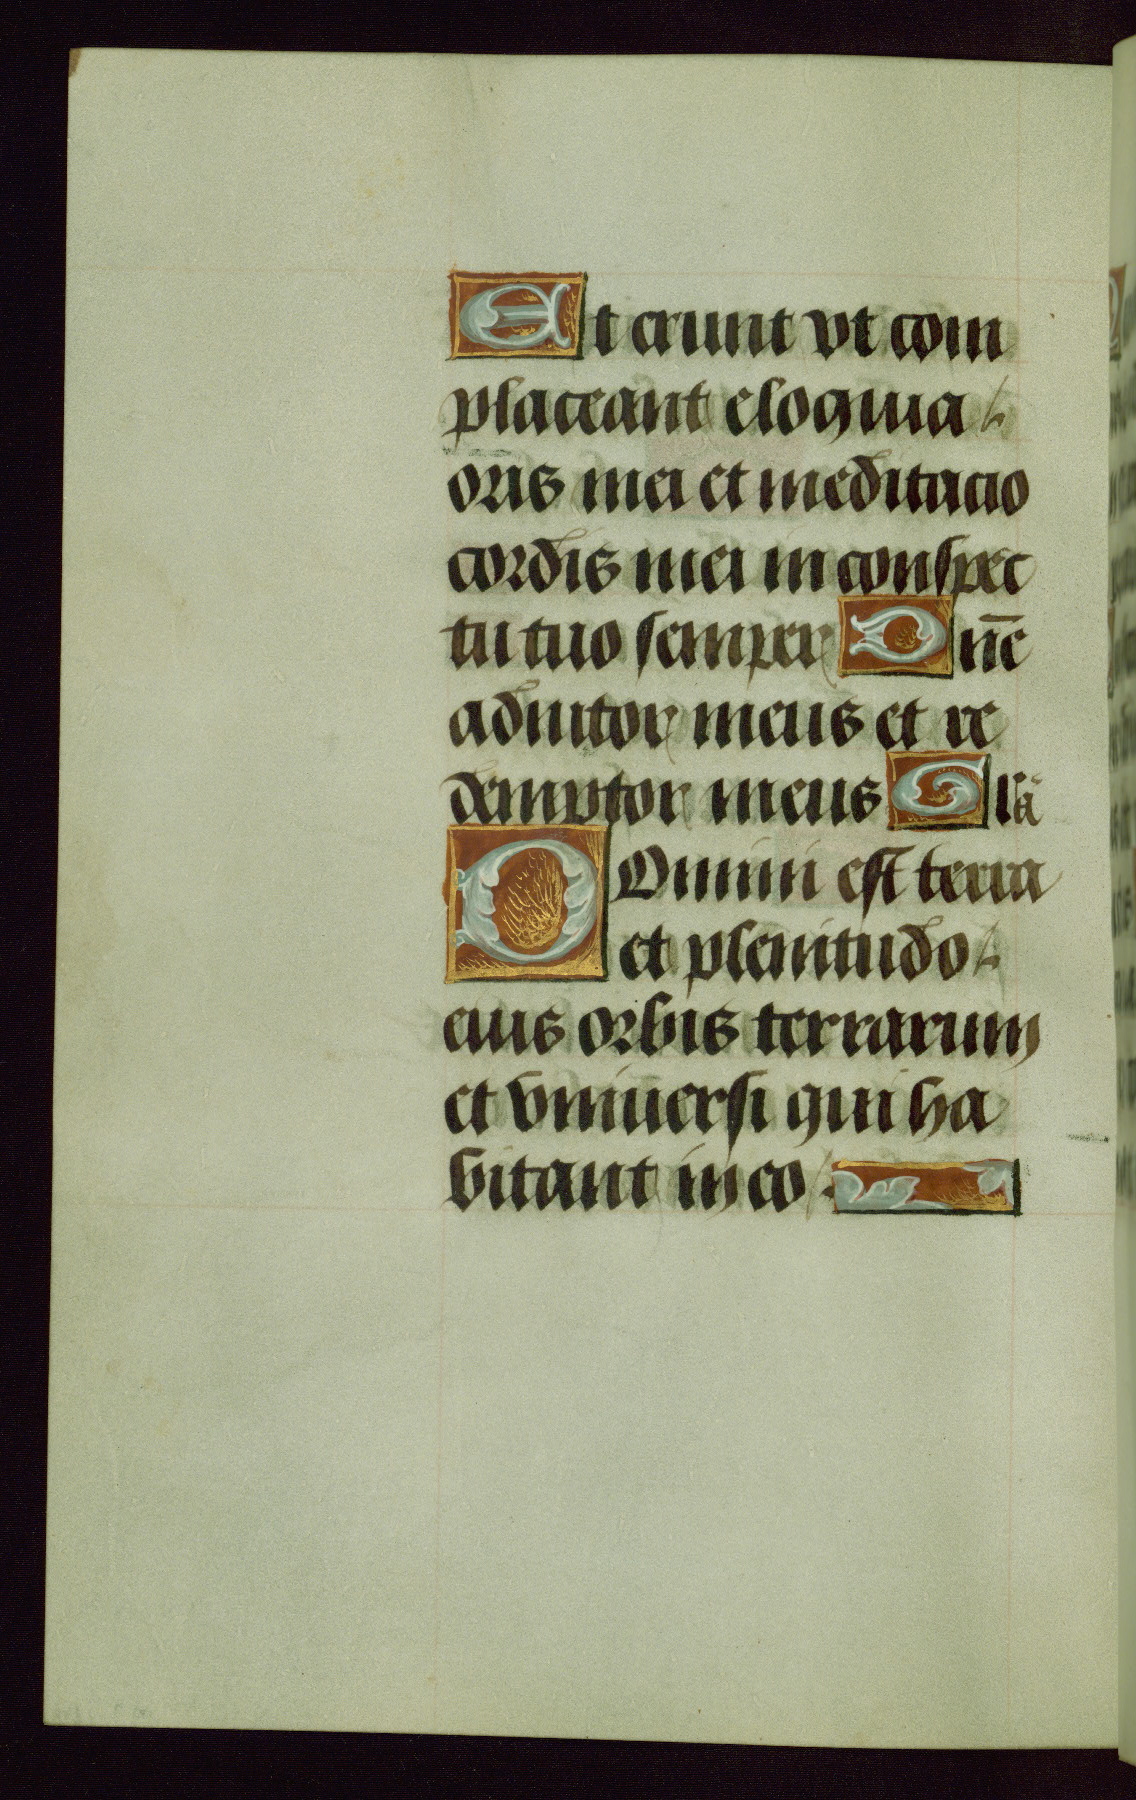 Et erunt vt com
placeant eloquia
oris mei et meditacio
cordis mei in conspec
tu tuo semper Dñe
adiutor meus et re
demptor meus Glã
Domini est terra
et plenitudo
eius orbis terrarum
et vniuersi qui ha
bitant in eo